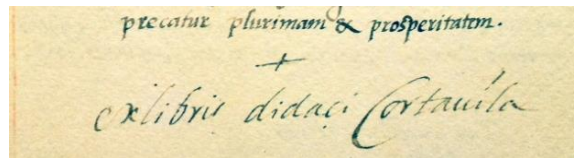 precatur plurimam & prosperitatem.
ex libris didaci Cortauila